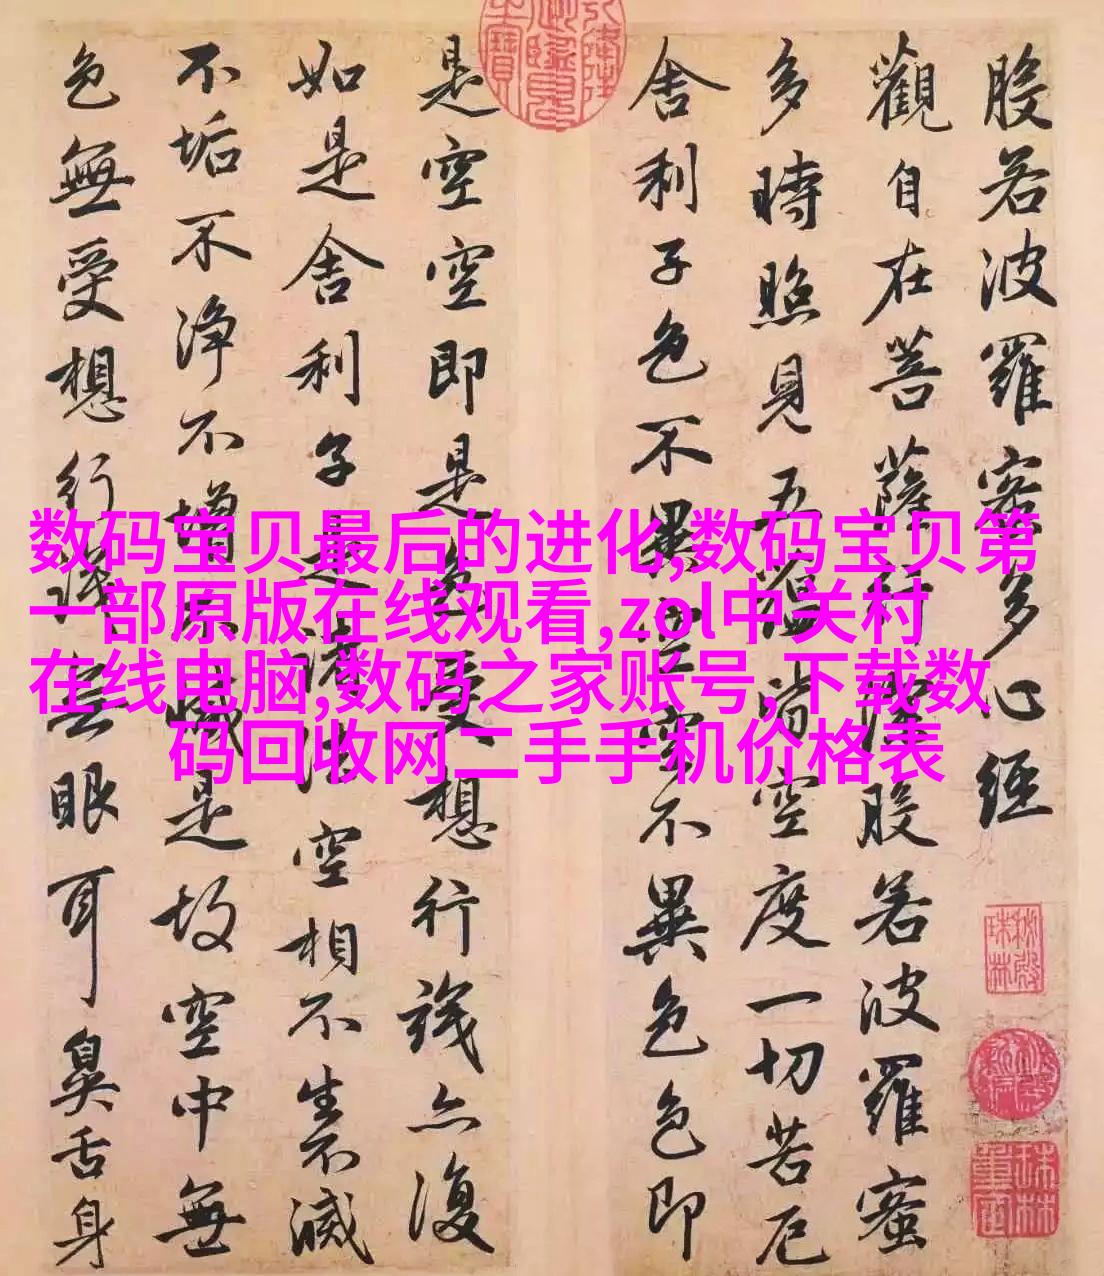 般若波羅蜜多心經
觀自在菩薩行深般若波羅蜜
多時照見五蘊皆空度一切苦厄
舍利子色不異空空不異色色即
是空空即是色受想行識亦復
如是舍利子是諸法空相不生不滅
不垢不淨不增不減是故空中無
色無受想行識無眼耳鼻舌身
数码宝贝最后的进化,数码宝贝第
一部原版在线观看,zol中关村
在线电脑,数码之家账号,下载数
码回收网二手手机价格表